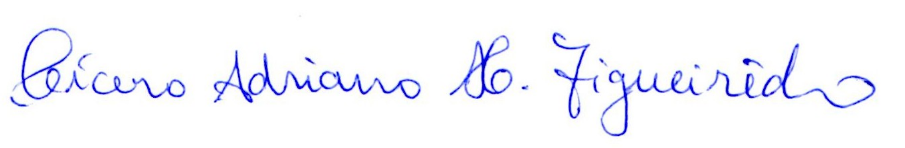 Cícero Adriano H. Figueirêdo